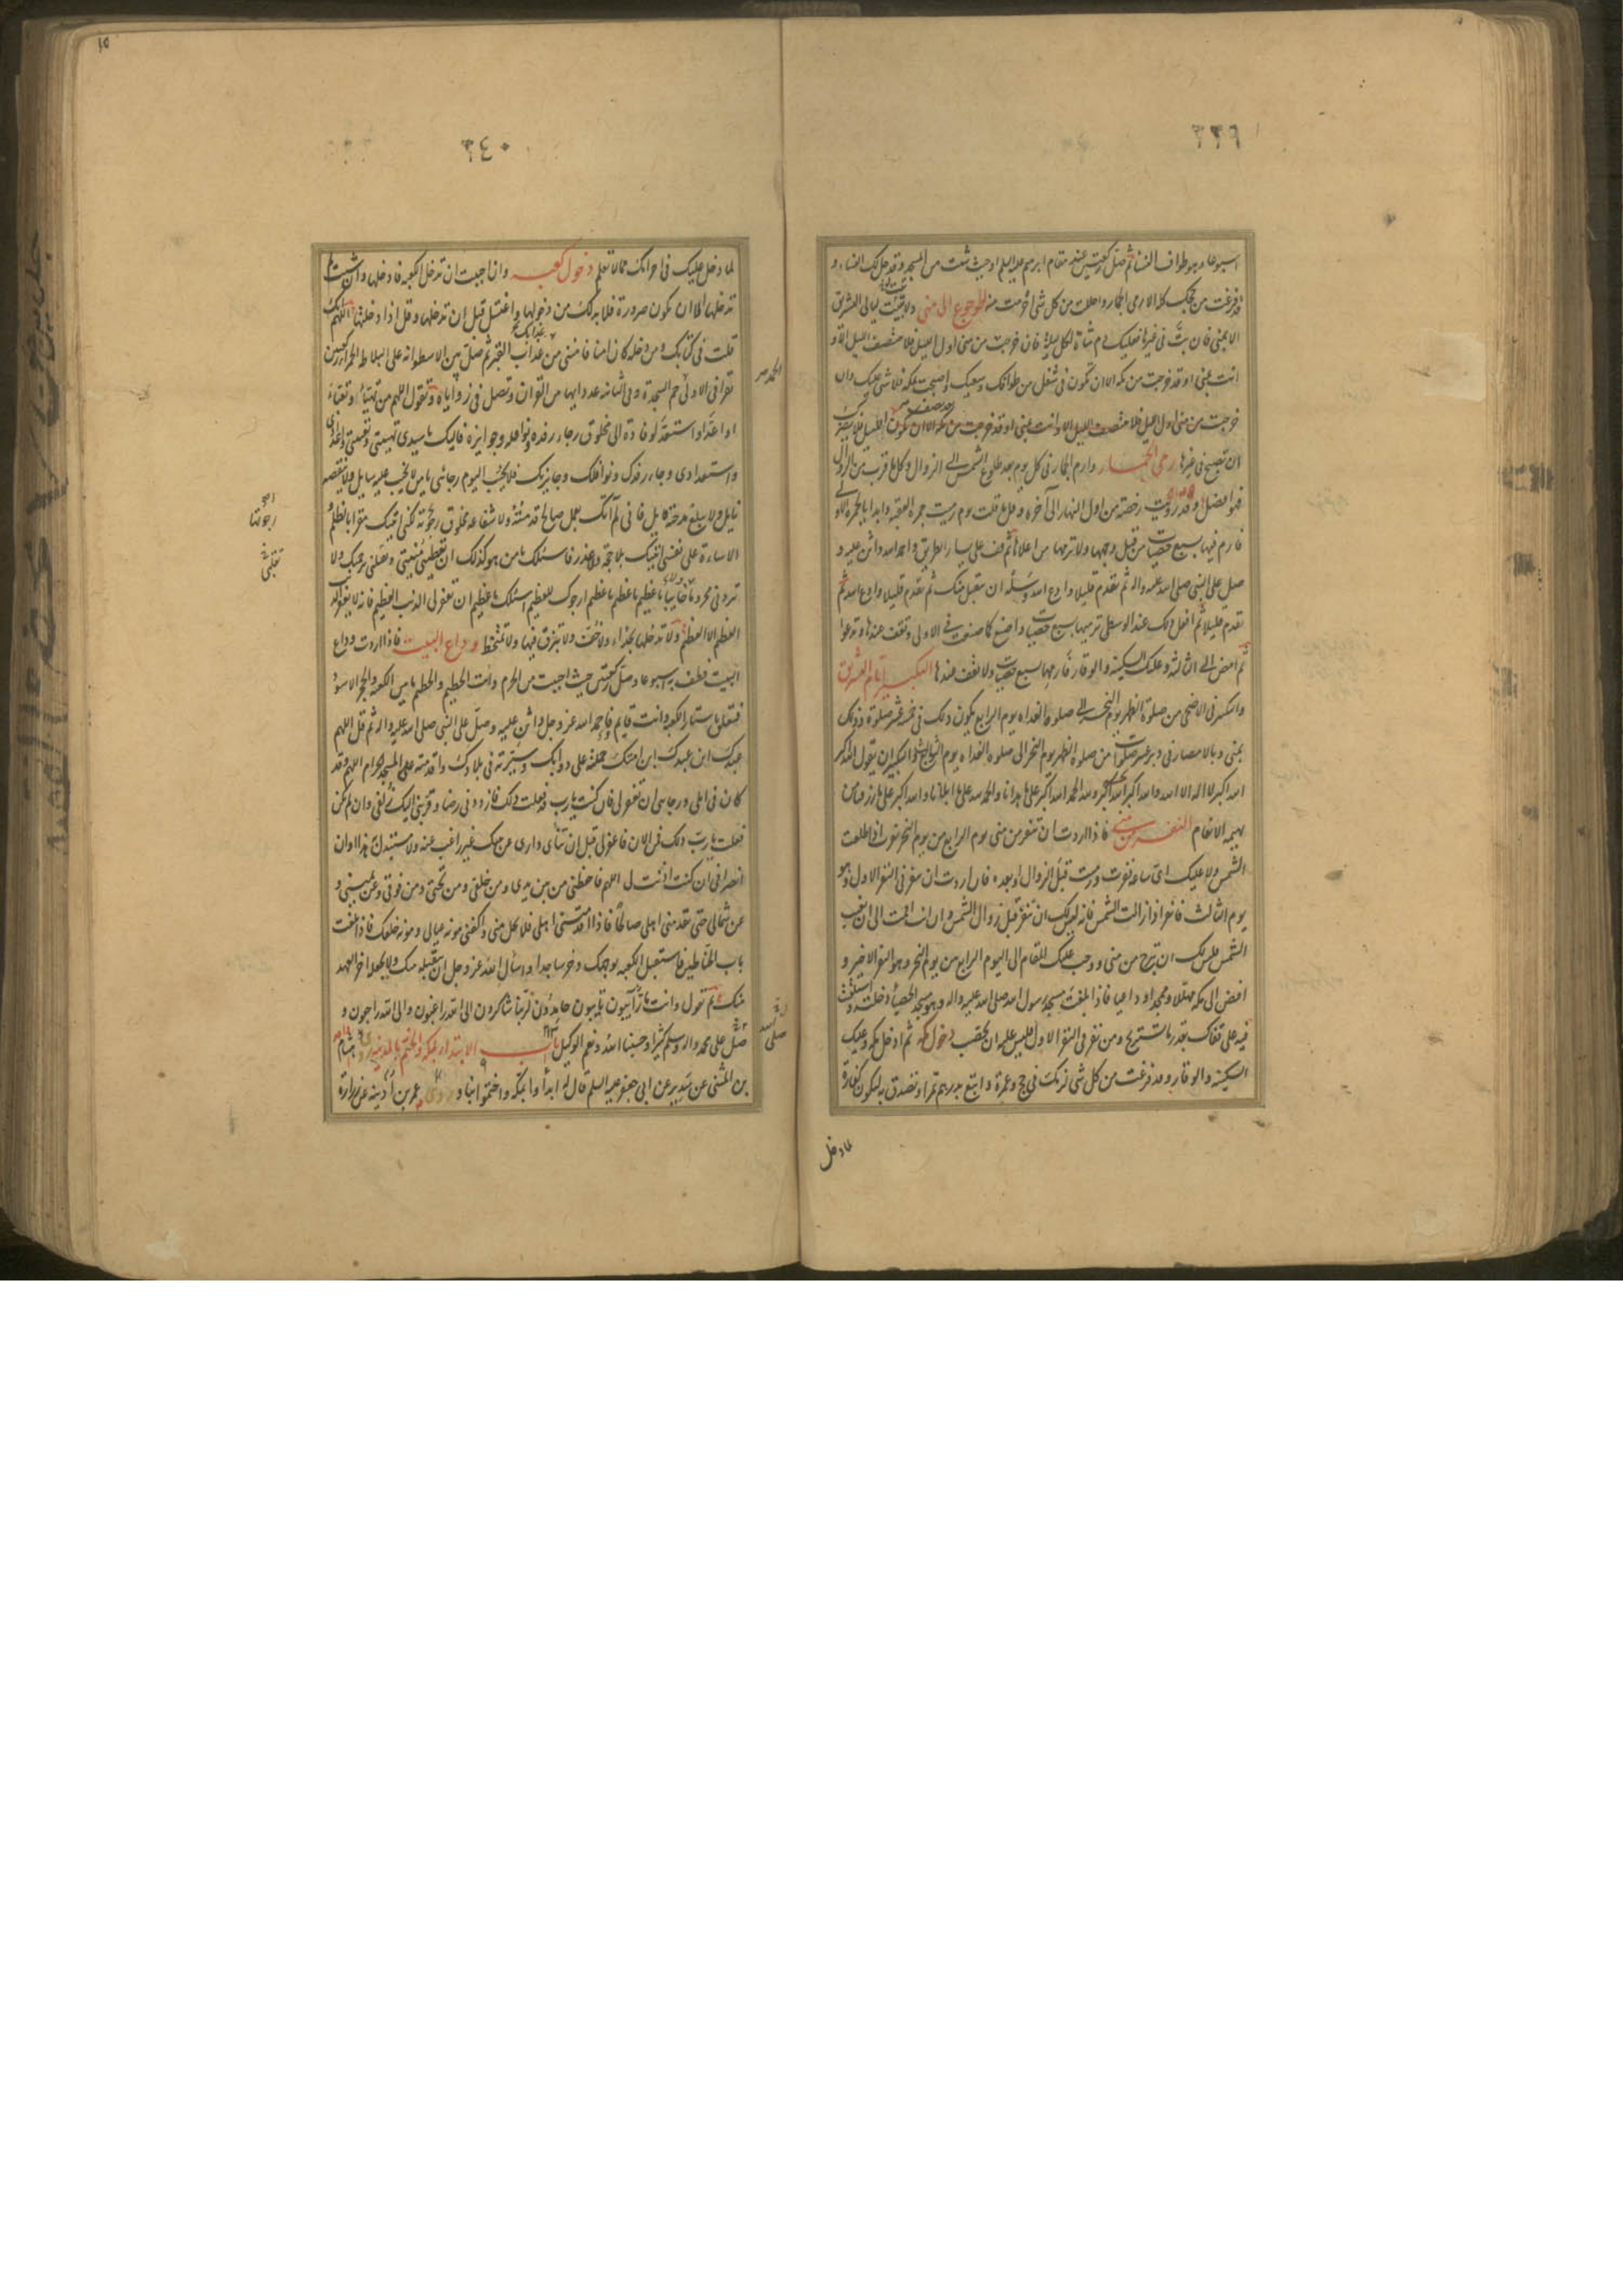 ٣٣٩
اسبوعا و هو طواف النساء ثم صل ركعتين عند مقام ابرهيم عليه السلم او حيث شئت من المسجد وقد حل لك النساء و
قد فرغت من حجك كله الا رمي الجمار واحللت من كل شئ احرمت منه الرجوع الى منى ولا تبيت ليالي التشريق
الا بمنى فان بت في غيرها فعليك دم شاة لكل ليلة فان خرجت من منى اول الليل فلا ينتصف الليل الا و
انت بمنى او قد خرجت من مكة الا ان تكون في شغل من طوافك وسعيك واصبحت بمكة فلا شئ عليك وان
خرجت من منى اول الليل فلا ينتصف الليل الا وانت بمنى او قد خرجت من مكة الا ان يكون الليل فلا يضرك
ان تصبح في غيرها رمي الجمار وارم الجمار في كل يوم بعد طلوع الشمس الى الزوال وكل ما قرب من الزوال
فهو افضل وقد رويت رخصة من اول النهار الى آخره وقل ما قلت يوم رميت جمرة العقبة وابدا بالجمرة الاولى
فارم فيها بسبع حصيات من قبل وجهها ولا ترمها من اعلاها ثم قف على يسار الطريق واحمد الله واثن عليه و
صل على النبي صلى الله عليه واله ثم تقدم قليلا وادع الله وسله ان يتقبل منك ثم تقدم قليلا وادع الله ثم
تقدم قليلا ثم افعل ذلك عند الوسطى ترميها بسبع حصيات واصنع كما صنعت في الاولى وتقف عندها وتدعوا
ثم امض الى الثالثة وعليك السكينة والوقار فارمها بسبع حصيات ولا تقف عندها التكبير ايام التشريق
والتكبير في الاضحى من صلوة الظهر يوم النحر الى صلوة الغداة يوم الرابع يكون ذلك في خمسة عشر صلوة وذلك
بمنى وبالامصار في دبر عشر صلوات من صلوة الظهر يوم النحر الى صلوة الغداة يوم الثالث والتكبير ان يقول الله اكبر
الله اكبر لا اله الا الله والله اكبر الله اكبر ولله الحمد الله اكبر على ما هدانا والحمد لله على ما ابلانا والله اكبر على ما رزقنا من
بهيمة الانعام النفر من منى فاذا اردت ان تنفر من منى يوم الرابع من يوم النحر نفرت اذا طلعت
الشمس ولا عليك اى ساعة نفرت ورميت قبل الزوال او بعده فان اردت ان تنفر في النفر الاول وهو
يوم الثالث فانفر اذا زالت الشمس فانه ليس لك ان تنفر قبل زوال الشمس وان انت اقمت الى ان تغيب
الشمس فليس لك ان تخرج من منى ووجب عليك المقام الى اليوم الرابع من يوم النحر وهو النفر الاخير و
افض الى مكة مهللا وممجدا وداعيا فاذا بلغت مسجد رسول الله صلى الله عليه واله وهو مسجد الحصباء دخلته واستلقيت
فيه على قفاك بقدر ما تستريح ومن نفر في النفر الاول فليس عليه ان يحصب دخول مكة ثم ادخل مكة وعليك
السكينة والوقار وقد فرغت من كل شئ لزمك في حج وعمرة وابتع بدرهم تمرا وتصدق به ليكون كفارة
لما دخل
٣٤٠
لما دخل عليك في احرامك مما لا تعلم دخول الكعبة وان احببت ان تدخل الكعبة فادخلها وان شئت لم
تدخلها الا ان تكون صرورة فلا بد لك من دخولها واغتسل قبل ان تدخلها وقل اذا دخلتها اللهم انك
قلت في كتابك ومن دخله كان امنا فامني من عذاب القبر ثم صل بين الاسطوانة على البلاطة الحمراء ركعتين
تقرا في الاولى حم السجدة وفي الثانية عدد ايها من القران وتصل في زواياه وتقول اللهم من تهيأ او تعبأ
او اعد او استعد لوفادة الى مخلوق رجاء رفده ونوافله وجوايزه فاليك يا سيدي تهيئتي وتعبئتي واعدادي
واستعدادي رجاء رفدك ونوافلك وجايزتك فلا تخيب اليوم رجائي يا من لا يخيب عليه سايل ولا ينقصه
نايل ولا يبلغ مدحته قايل فاني لم آتك بعمل صالح قدمته ولا شفاعة مخلوق رجوته لكني اتيتك مقرا بالظلم و
الاساءة على نفسي اتيتك بلا حجة ولا عذر فاسئلك يا من هو كذلك ان تعطيني منيتي وتقبلني برحمتك ولا
تردني محروما ولا خايبا يا عظيم يا عظيم يا عظيم ارجوك للعظيم اسئلك يا عظيم ان تغفر لي الذنب العظيم فانه لا يغفر الذنب
العظيم الا العظيم ولا تدخلها بحذاء ولا خف ولا تبزق فيها ولا تمتخط وداع البيت فاذا اردت وداع
البيت فطف به اسبوعا وصل ركعتين حيث احببت من الحرم وائت الحطيم والحطيم ما بين الكعبة والحجر الاسود
فتعلق باستار الكعبة وانت قايم فاحمد الله عز وجل واثن عليه وصل على النبي صلى الله عليه واله ثم قل اللهم
عبدك ابن عبدك ابن امتك حملته على دوابك وسيرته في بلادك واقدمته المسجد الحرام اللهم وقد
كان في املي ورجائي ان تغفر لي فان كنت يا رب فعلت ذلك فازدد عني رضا وقربني اليك زلفى وان لم تكن
فعلت يا رب ذلك فمن الان فاغفر لي قبل ان تنأى داري عن بيتك غير راغب عنه ولا مستبدل به هذا اوان
انصرافي ان كنت اذنت لي اللهم فاحفظني من بين يدي ومن خلفي ومن تحتي ومن فوقي وعن يميني و
عن شمالي حتى تقدمني اهلي صالحا فاذا اقدمتني اهلي فلا تخل مني واكفني مؤنة عيالي ومؤنة خلقك فاذا بلغت
باب الحناطين فاستقبل الكعبة بوجهك وخر ساجدا واسأل الله عز وجل ان يتقبله منك ولا يجعله اخر العهد
منك ثم تقول وانت مار آيبون تايبون حامدون لربنا شاكرون الى الله راغبون والى الله راجعون و
صل على محمد واله وسلم كثيرا وحسبنا الله ونعم الوكيل باب الابتداء بمكة والختم بالمدينة روى هشام
بن المثنى عن سدير عن ابي جعفر عليه السلم قال له ابدأوا بمكة واختموا بنا و روى عمر بن اذينة عن زرارة